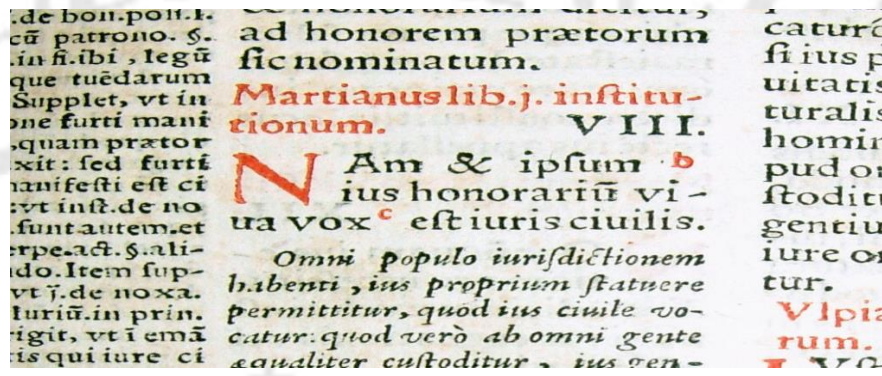 .de bon.poss.l.
cũ patrono. §.
.in fi.ibi , legũ
que tuẽdarum
Supplet, vt in
one furti mani
quam prætor
xit: sed furti
manifesti est ci
:vt inst.de no
.funt autem.et
erpe.act. §.ali-
do. Item sup-
vt j̃.de noxa.
Iuriũ.in prin.
igit, vt ĩ emã
tis qui iure ci
ad honorem prætorum
ſic nominatum.
Martianus lib. j. inſtitu-
tionum. VIII.
NAm & ipſum b
ius honorariũ vi-
ua vox c eſt iuris ciuilis.
Omni populo iuriſdictionem
habenti , ius proprium ſtatuere
permittitur, quod ius ciuile vo-
catur: quod verò ab omni gente
æqualiter cuſtoditur , ius gen-
catur
ſi ius p
uitatis
turalis
homin
pud o
ſtodit
gentiu
iure o
tur.
Vlpia
rum.